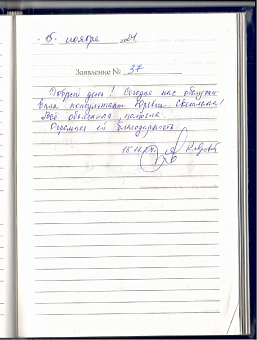 15 ноября 2024
Заявление № 37
Добрый день! Сегодня нас обслужи-
вала консультант Светлана!
Всё объяснила, помогла.
Огромная ей благодарность
15.11.24